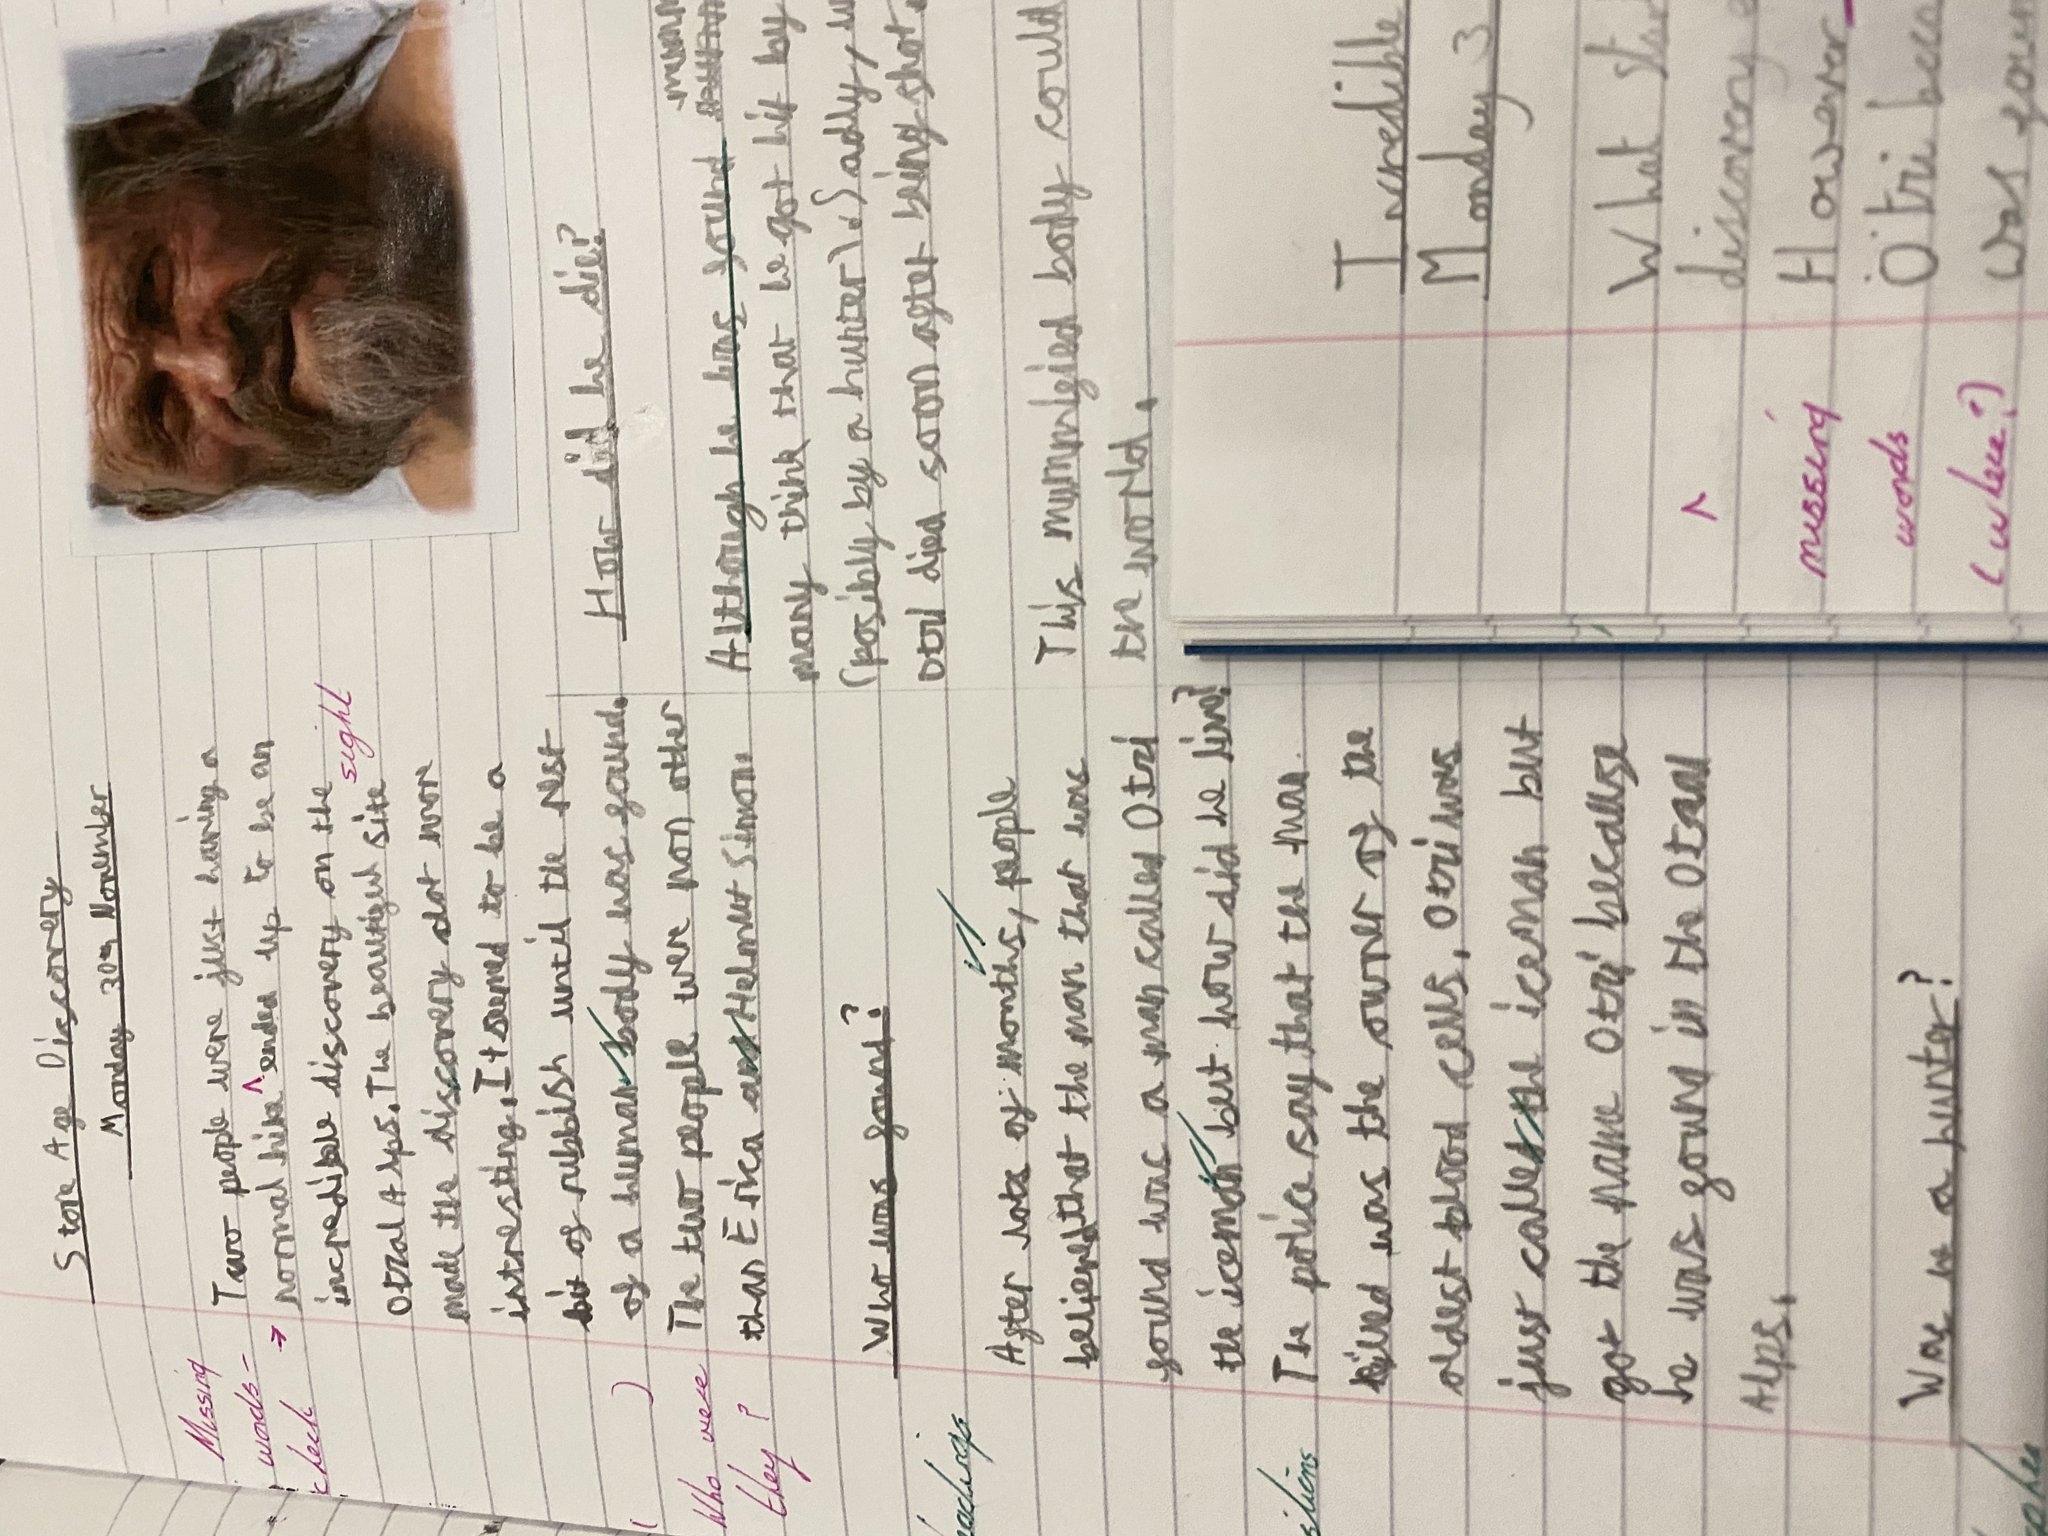 Stone Age Discovery
Monday 30th November
Missing
words -
check
Two people were just having a
normal hike ^ ended up to be an
incredible discovery on the
sight
Otzal Alps. The beautiful site
made the discovery alot more
intresting. It seemed to be a
bit of rubbish until the rest
of a human body was found.
( )
Who were
they?
The two people were non other
than Erica and Helmut Simon.
Who was found?
After lots of months, people
believed that the man that was
found was a man called Otzi
the iceman but how did he live?
The police say that the man
killed was the owner of the
oldest blood cells. Otzi was
just called the iceman but
got the name Otzi because
he was found in the Otzal
Alps.
Was he a hunter?
How did he die?
Although he was found
many think that he got hit by
(posibly by a hunter). Sadly,
Otzi died soon after being shot.
This mummified body could
the world.
Incredible
Monday 3
What star
discovery
However
Ötzi beca
was foun
^
missing
words
(where?)